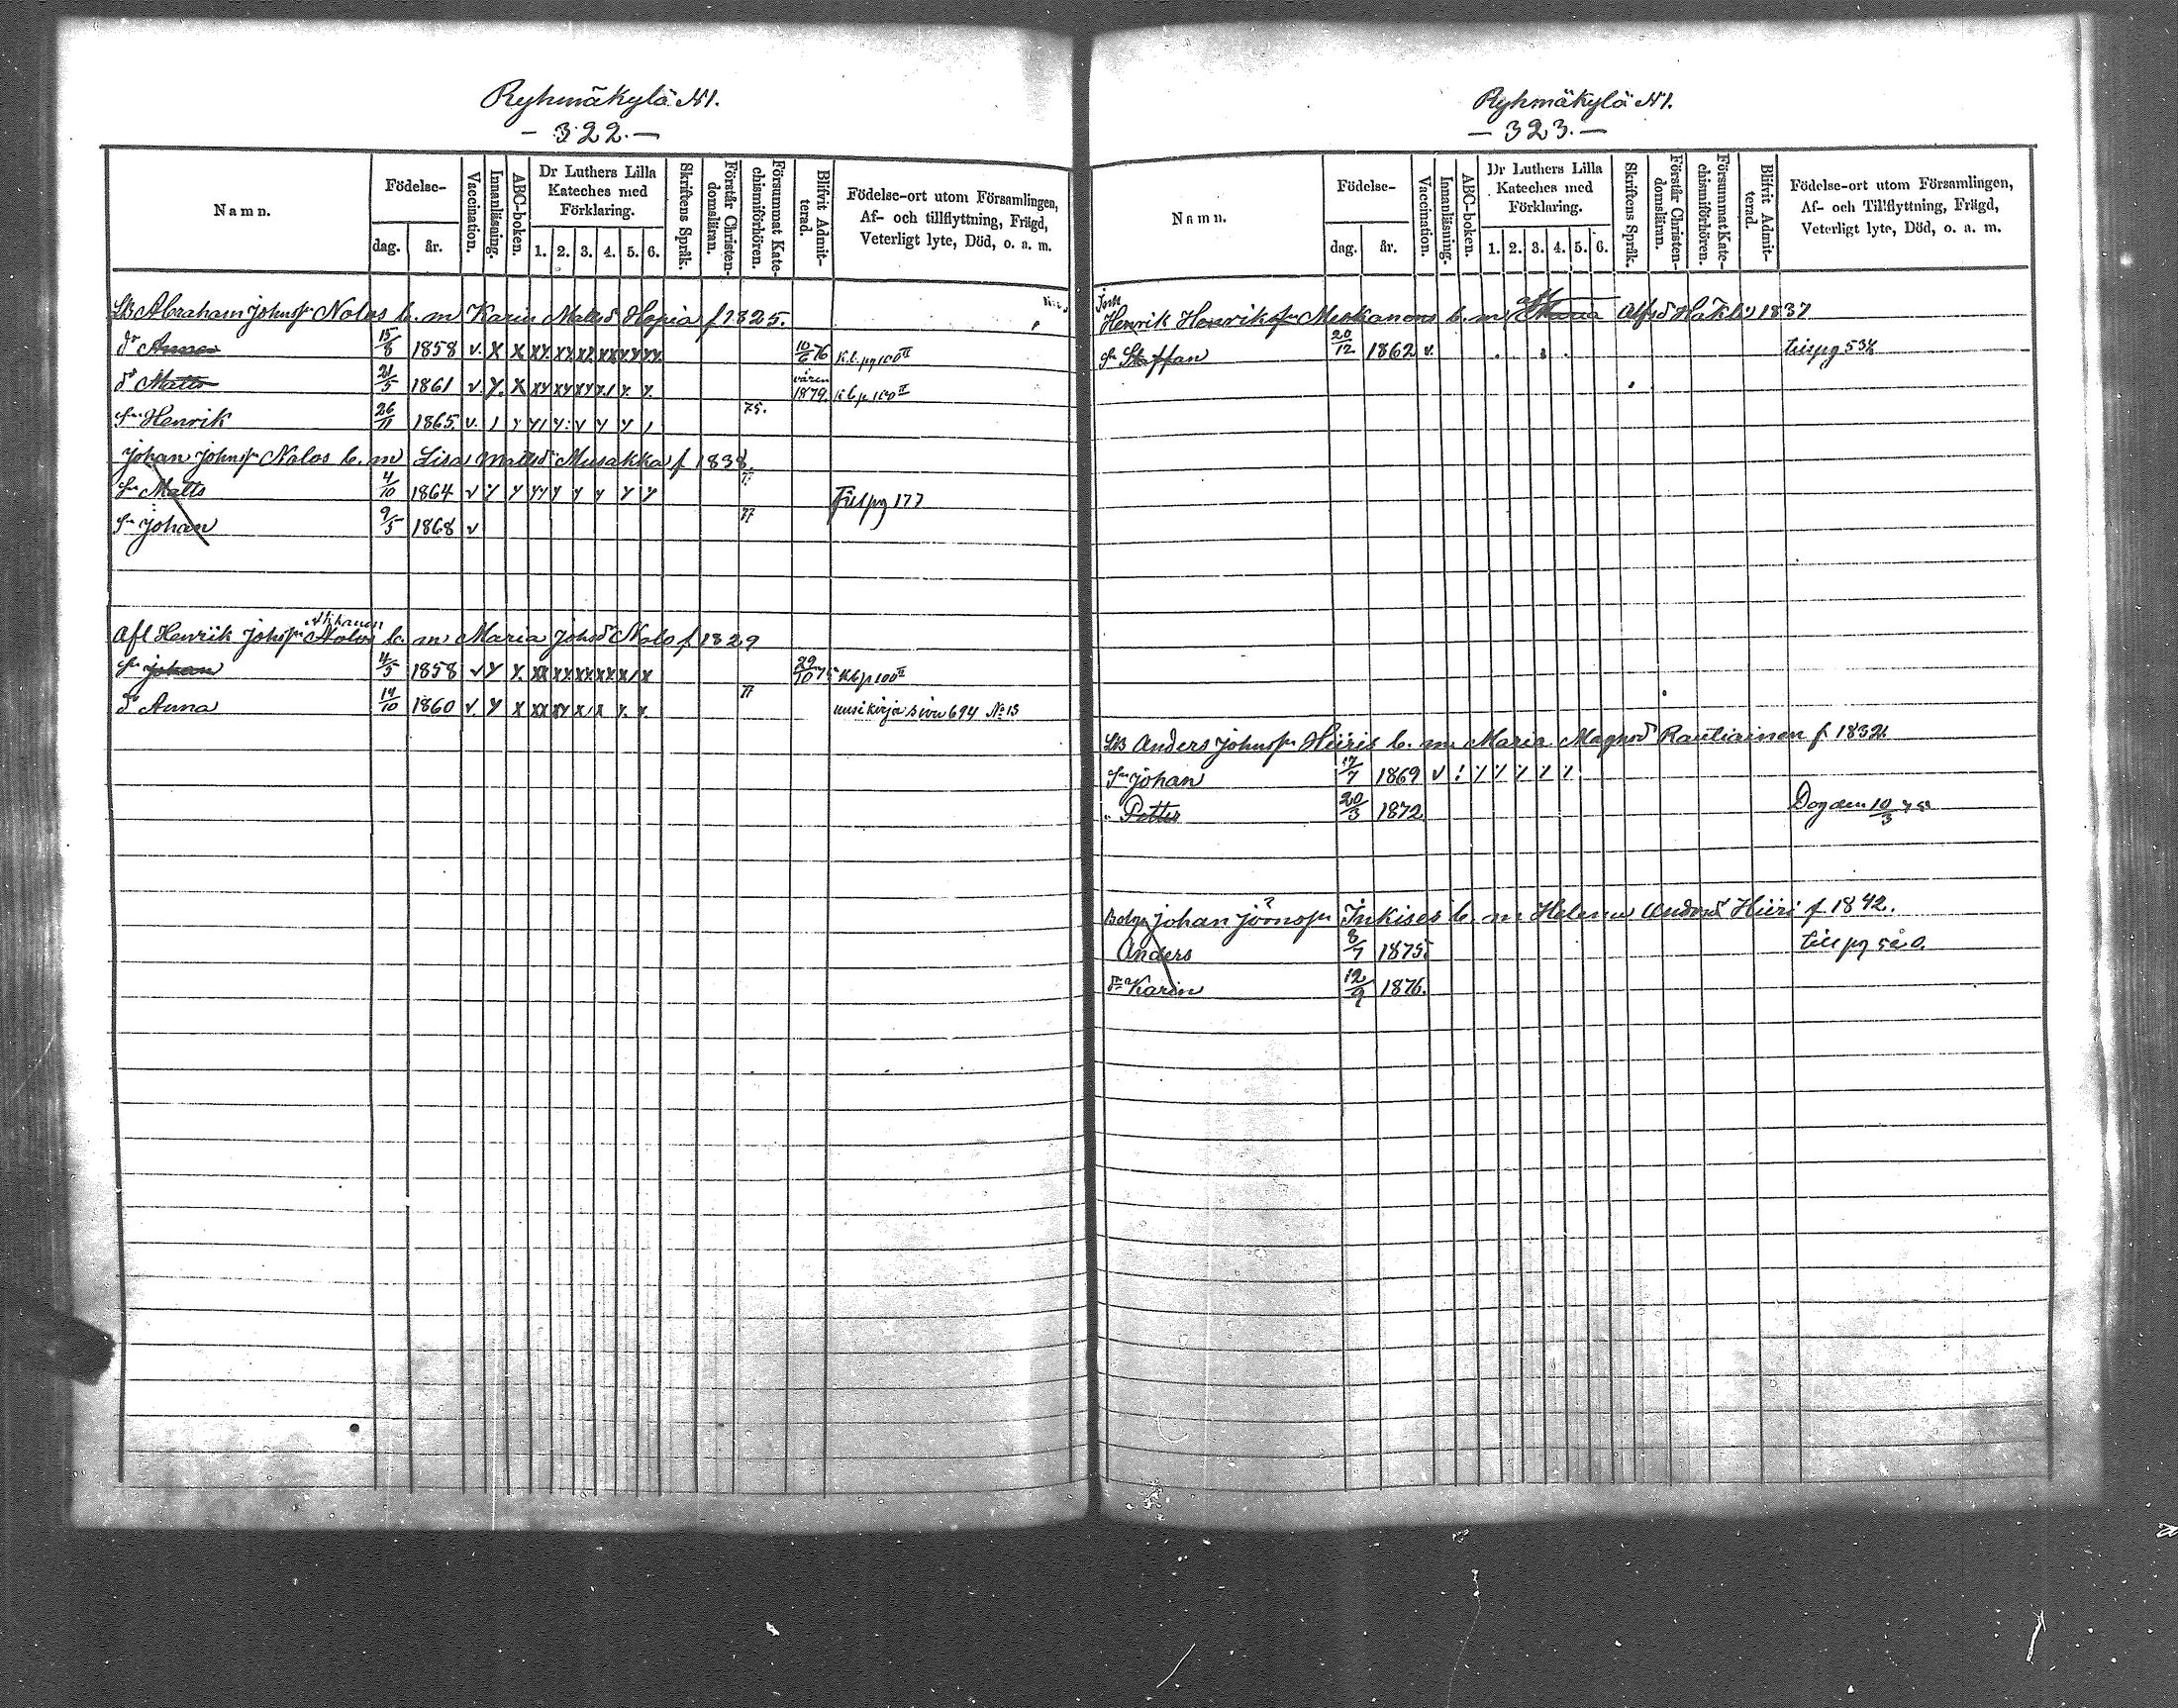 Ryhmäkylä N1.
- 322. -
Namn.
Födelse-
dag.
år.
Vaccination.
Innanläsning.
ABC-boken.
Dr Luthers Lilla
Kateches med
Förklaring.
1. 2. 3. 4. 5. 6.
Skriftens Språk.
Förstår Christen-
domsläran.
Försummat Kate-
chismiförhören.
Blifvit Admit-
terad.
Födelse-ort utom Församlingen,
Af- och tillflyttning, Frägd,
Veterligt lyte, Död, o. a. m.
Abraham Johnsn Nalos b. m Karin Matsd Hepia f 1825.
dr Anna 15/8 1858 v. x x xx xx xx xx xx xx 10/6 76 K.b. pg 100 II
Matts 21/5 1861 v. våren 1879. K b p 100 II
Sn Henrik 26/11 1865 v. 75.
Johan Johnsn Nalos b. m Lisa Mattsd Musakka f 1838.
Sn Matts 4/10 1864 v Till pg 177
Sn Johan 9/5 1868 v 77
Afl Henrik Johsn Nalos b. m Maria Johsd Nalo f 1829
Sn Johan 4/5 1858 v 29/10 K b p 100 II
d Anna 14/10 1860 v. 77 uusi kirja sivu 694 No 13
Ryhmäkylä N1.
- 323. -
Namn.
Födelse-
dag.
år.
Vaccination.
Innanläsning.
ABC-boken.
Dr Luthers Lilla
Kateches med
Förklaring.
1. 2. 3. 4. 5. 6.
Skriftens Språk.
Förstår Christen-
domsläran.
Försummat Kate-
chismiförhören.
Blifvit Admit-
terad.
Födelse-ort utom Församlingen,
Af- och Tillflyttning, Frägd,
Veterligt lyte, Död, o. a. m.
Henrik Henriksn Meskanens b. m 1837
Sn Staffan 20/12 1862 v. till pg
Anders Johnsn Hiiris b. m Maria Magnsd Rautiainen f 1832.
Sn Johan 17/7 1869 v
" Petter 20/3 1872 Dog den 10/3
Johan Inkises b. m Helena Andersd Hiiri f 1842.
Anders 8/7 1875. till pg
dr Karin 12/9 1876.